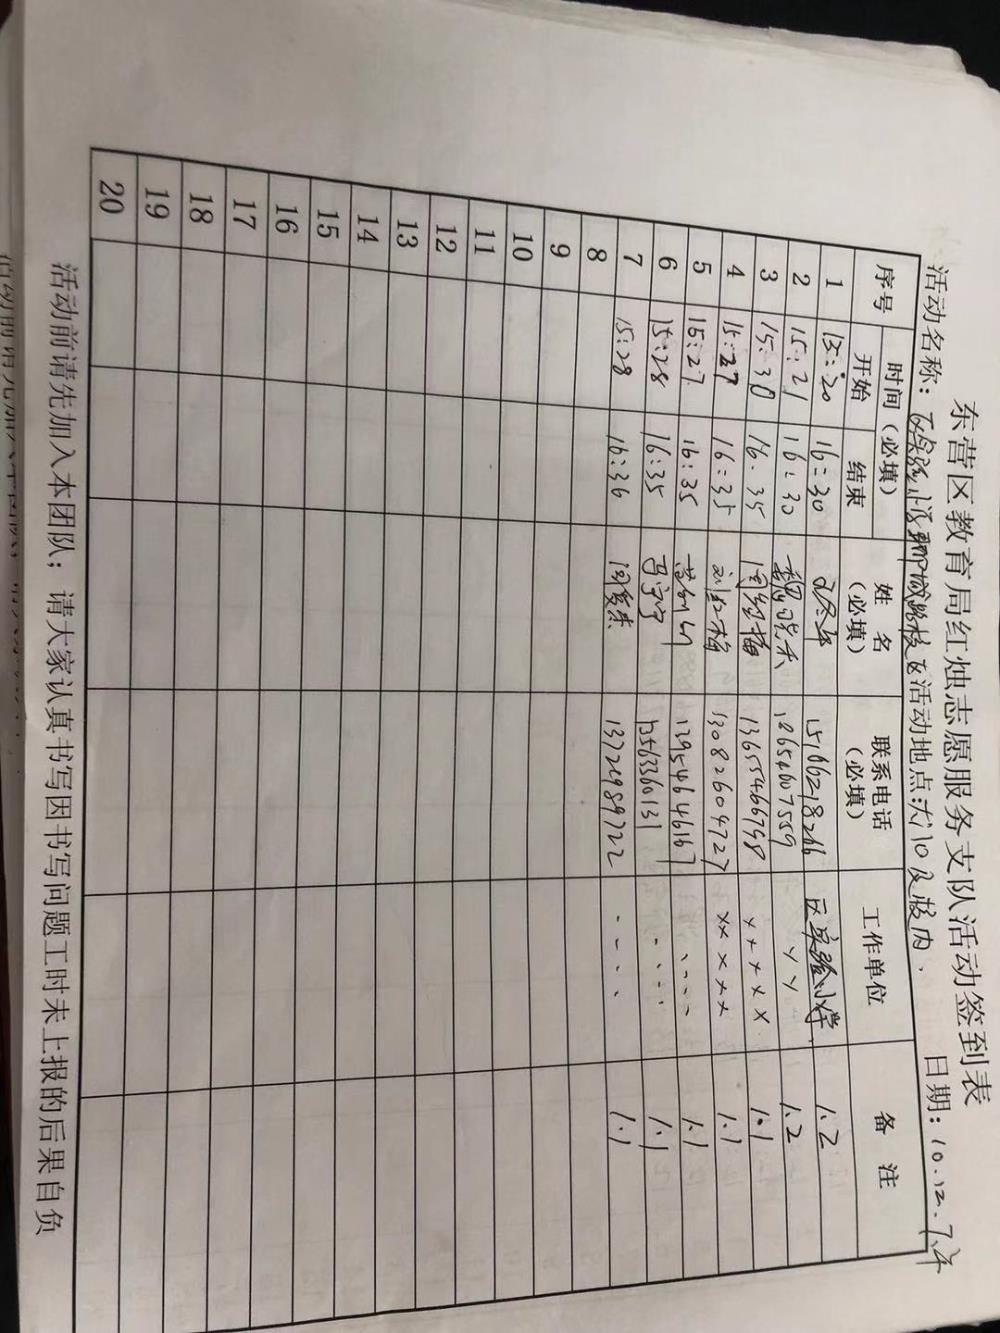 东营区教育局红烛志愿服务支队活动签到表
活动名称: 聊城路校区 活动地点: 大门口及校内. 日期: 10.12.下午
序号 时间(必填) 姓名(必填) 联系电话(必填) 工作单位 备注
开始 结束
1 15:20 16:30 15106218266 区实验小学 1.2
2 15:21 16:30 18654607559 〃 〃 1.2
3 15:30 16:35 周红梅 13655466798 〃 〃 〃 〃 〃 1.1
4 15:27 16:35 刘红梅 13082604727 〃 〃 〃 〃 〃 1.1
5 15:27 16:35 13954646167 1.1
6 15:28 16:35 马宁宁 13563360131 1.1
7 15:28 16:36 13721989722 1.1
8
9
10
11
12
13
14
15
16
17
18
19
20
活动前请先加入本团队; 请大家认真书写因书写问题工时未上报的后果自负